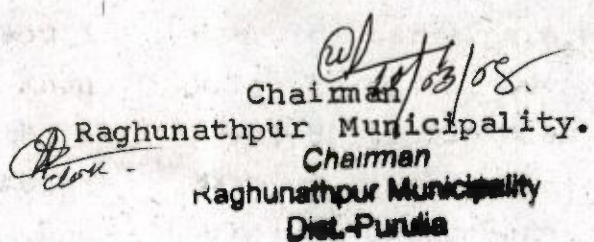 10/03/08.
Chairman
Raghunathpur Municipality.
Clerk -
Chairman
Raghunathpur Municipality
Dist.-Purulia